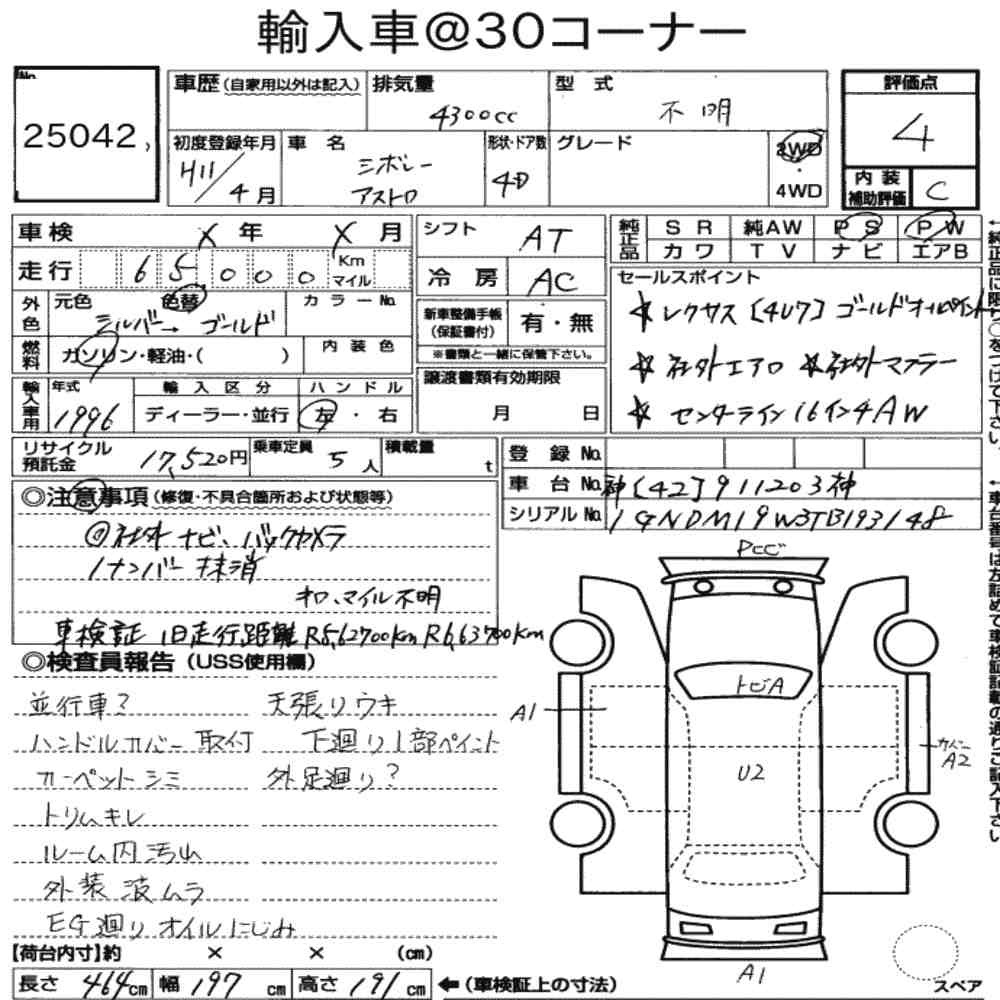 輸入車@30コーナー
No.
25042
車歴(自家用以外は記入) 排気量 4300cc 型式 不明
初度登録年月 H11/4月 車名 シボレー アストロ 形状・ドア数 4D グレード 2WD・4WD
評価点 4
内装補助評価 C
車検 X年 X月
走行 65000 Km マイル
外色 元色 色替 カラーNo.
シルバー→ ゴールド
燃料 ガソリン・軽油・( ) 内装色
輸入車用 年式 1996 輸入区分 ディーラー・並行 ハンドル 左・右
シフト AT
冷房 AC
新車整備手帳(保証書付) 有・無
※書類と一緒に保管下さい。
譲渡書類有効期限
月 日
純正品 SR 純AW PS PW
カワ TV ナビ エアB
セールスポイント
☆レクサス[4U7]ゴールドオールペイント
☆社外エアロ ☆社外マフラー
☆センターライン16インチAW
←純正品に限り○をつけて下さい。
リサイクル預託金 17,520円 乗車定員 5人 積載量 t
登録No.
車台No. 神[42]911203神
シリアルNo. 1GNDM19W3TB193148
←車台番号は左詰めで車検証記載の通りご記入下さい
◎注意事項(修復・不具合箇所および状態等)
◎社外ナビ、バックカメラ
1ナンバー抹消
キロ、マイル不明
車検証 旧走行距離 R5,62700Km R6,63700Km
◎検査員報告(USS使用欄)
並行車? 天張リウキ
ハンドルカバー取付 下廻り1部ペイント
カーペットシミ 外足廻り?
トリムキレ
ルーム内汚れ
外装波ムラ
EG廻りオイルにじみ
Pとび
トビA
A1
U2
カバー
A2
A1
スペア
【荷台内寸】約 × × (cm)
長さ 464cm 幅 197cm 高さ 191cm ←(車検証上の寸法)